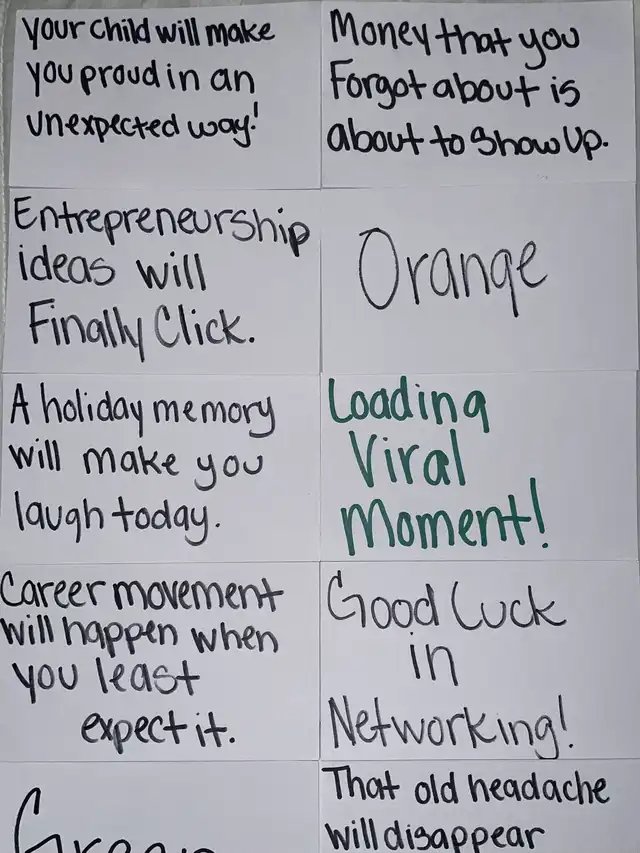 Your child will make
you proud in an
unexpected way!
Money that you
Forgot about is
about to Show Up.
Entrepreneurship
ideas will
Finally Click.
Orange
A holiday memory
will make you
laugh today.
Loading
Viral
Moment!
Career movement
will happen when
you least
expect it.
Good Luck
in
Networking!
Green
That old headache
will disappear